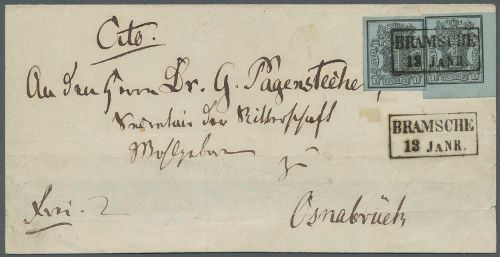 Cito.
BRAMSCHE
13 JANR.
An den Herrn Dr. G. Pagenstecher,
Secretair der Ritterschaft
Wohlgeboren
BRAMSCHE
13 JANR.
zu
frei. 2
Osnabrück